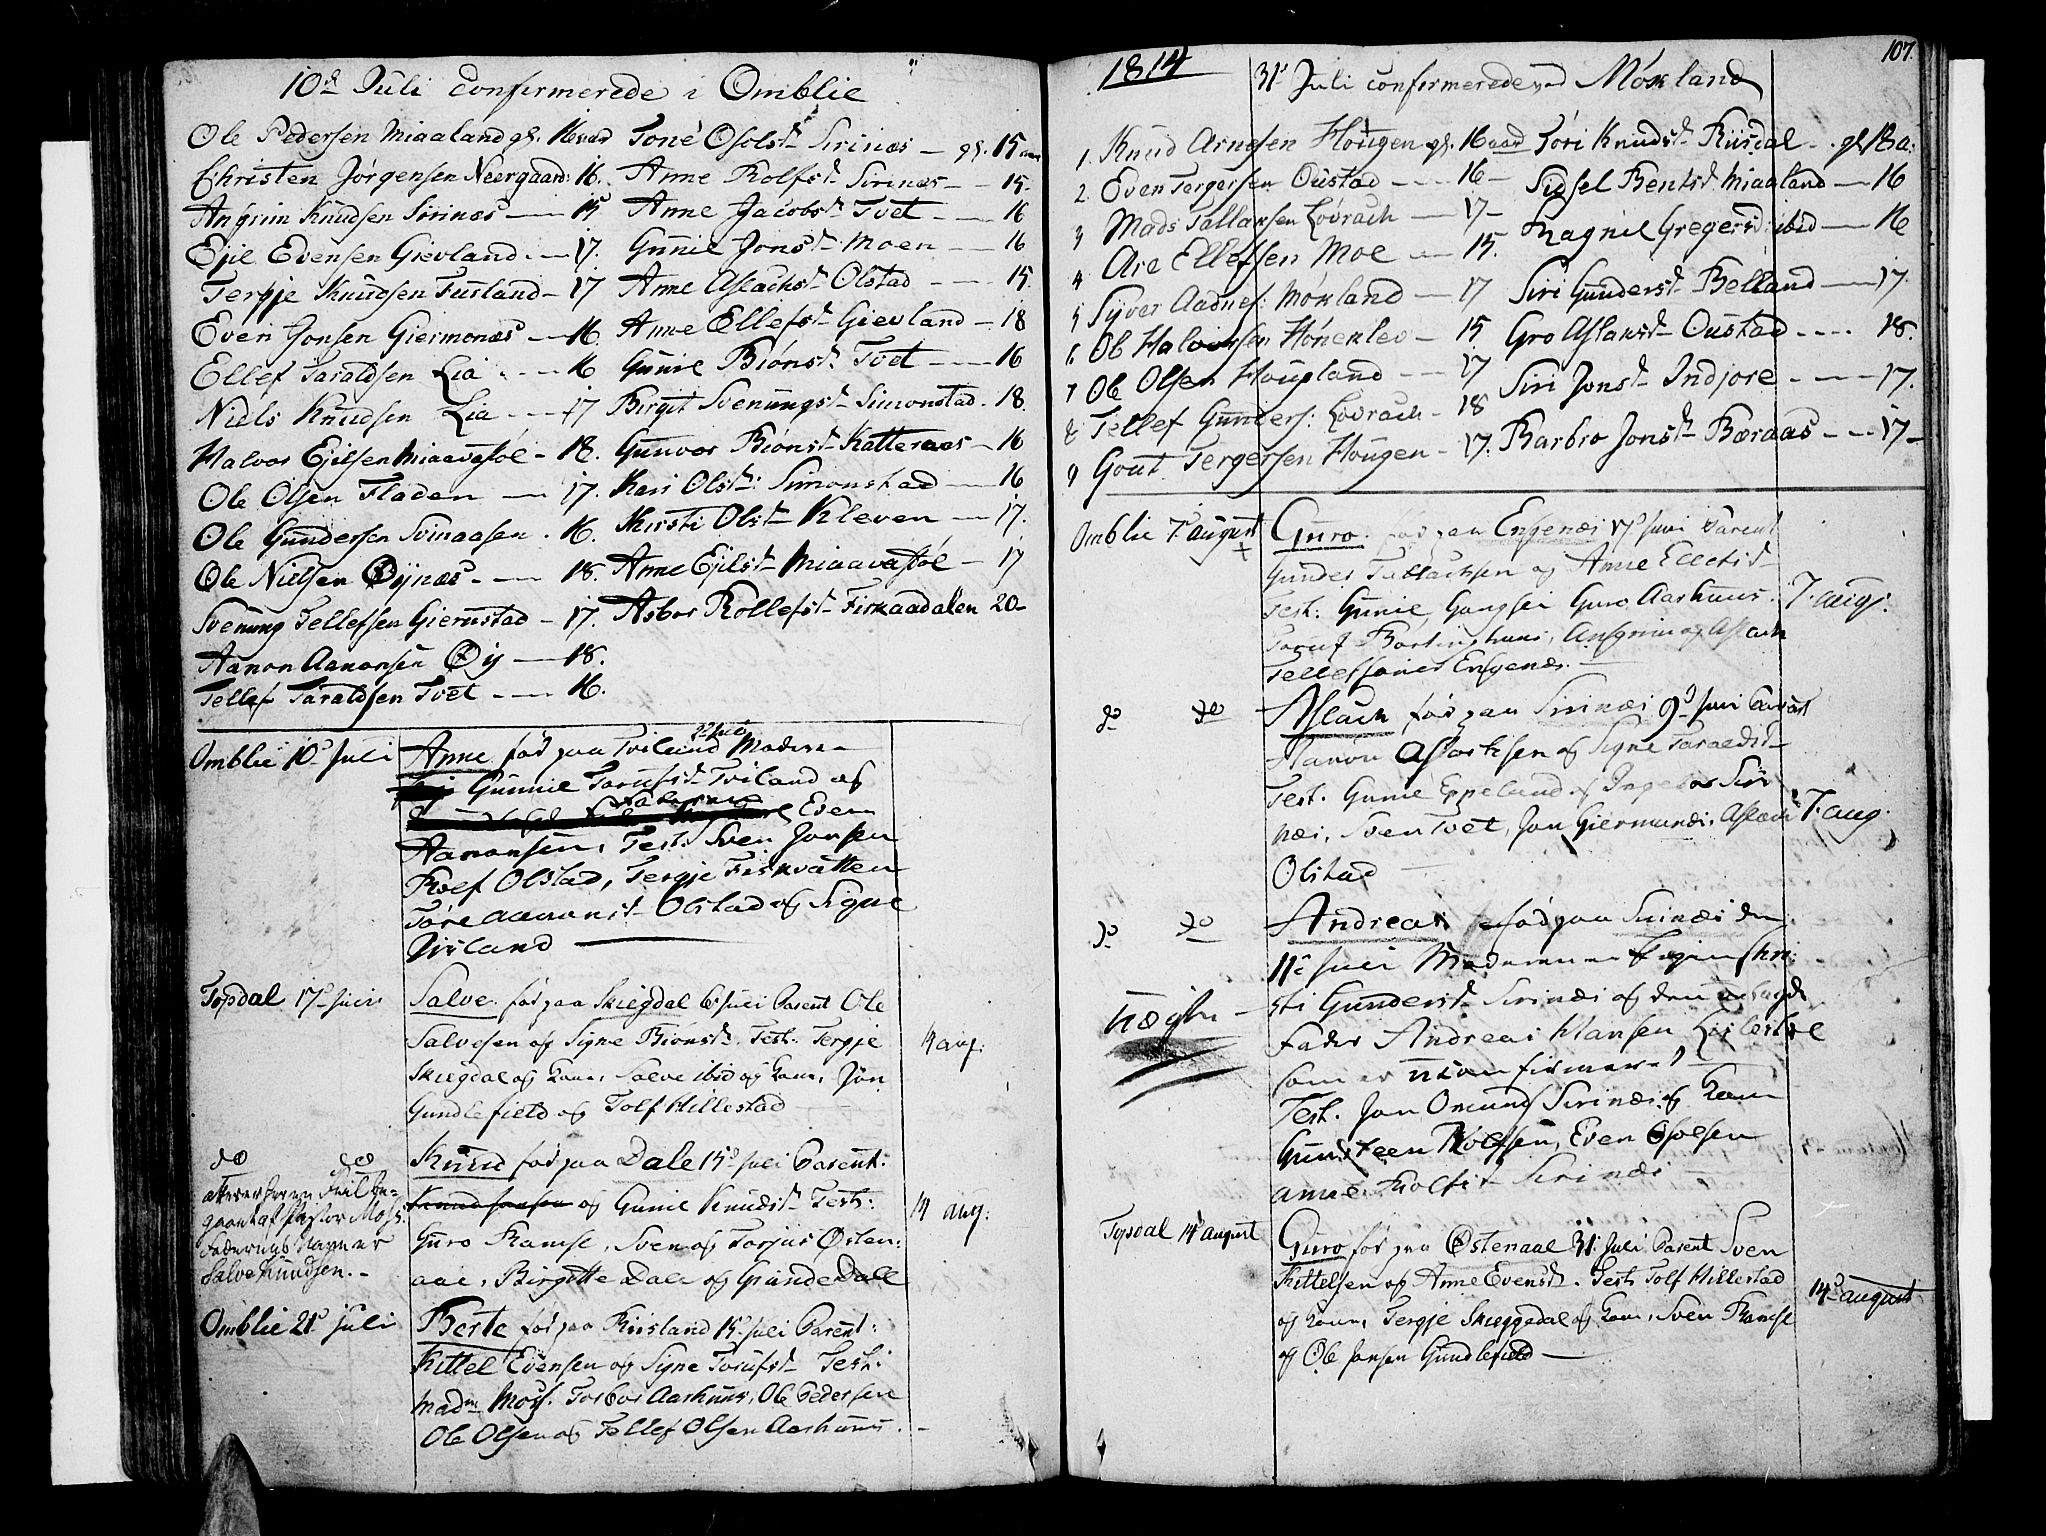 10d Juli Confirmerede i Omblie
Ole Pedersen Miaaland gl. 16 aar Tone Osolsd. Sirinæs - gl. 15 aar
Christen Jørgensen Neergaard: 16. Anne Rolfsd. Sirinæs - 15.
Angrim Knudsen Sirinæs - 15 Anne Jacobsd. Tvet - 16
Ejil Evensen Gievland - 17. Gunil Jonsd. Moen - 16
Tergje Knudsen Fusland - 17 Anne Aslachsd. Olstad - 15.
Even Jonsen Giermonæs - 16. Anne Ellefsd. Gievland - 18
Ellef Taraldsen Lia - 16 Gunil Biønsd. Tvet - 16
Niels Knudsen Lia - 17 Birgit Svenungsd. Simonstad - 18.
Halvor Ejilsen Miaavasøl - 18. Gunvor Biønsd. Katteraas - 16
Ole Olsen Fladen - 17. Kari Olsd. Simonstad - 16
Ole Gundersen Svinaasen - 16. Kirsti Olsd. Kleven - 17.
Ole Nielsen Øynæs - 18. Anne Ejilsd. Miaavasøl - 17
Svenung Tellefsen Gierustad - 17. Asbor Rollefsd. Firkaadalen 20-
Aanon Aanonsen Øy - 18.
Tellef Taraldsen Tvet - 16.
Omblie 10d Juli Anne fød paa Tveland Moderen
Gunnil Torufsd. Tveland og
Faderen Even
Aanonsen, Test: Sven Jonsen
Roef Olstad, Tergje Fiskvatten
Tore Aanonsd. Olstad og Signe
Risland
Topsdal 17d Juli Salve fød paa Skiegdal 6d Juli Parent Ole
Salvesen og Signe Biønsd. Test: Tergje
Skiegdal og Kone, Salve ibid og Kone, Jon 14 aug:
Gundlefield og Tolf Hillestad
do do Knud fød paa Dale 15d Juli Parent:
og Gunil Knudsd. Test: 14 aug:
gaaet af Pastor Moss.
Faderens Navn er
Salve Knudsen.-
Guro Ramse, Sven og Torjus Østen-
aae, Birgitte Dale og Gunde Dale
Omblie 21d Juli Berte fød paa Risland 15d Juli Parent:
Kittel Evensen og Signe Torufsd. Test:
Madm Moss. Torbor Aarhuus, Ole Pedersen
Ole Olsen og Tellef Olsen Aarhuus.
1814 31d Juli confirmerede ved Møxland 107.
1. Knud Arnesen Hougen gl. 16 aar Tøri Knudsd. Riisdal - gl. 18 a:
2. Even Tergersen Oustad - 16 - Sidsel Bentsd. Miaaland - 16
3 Mads Tallaksen Løvrach - 17 - Ragnil Gregersd. ibid - 16
4 Are Ellefsen Moe - 15. Siri Gundersd. Belland - 17.
5 Syver Aadnes: Møxland - 17 Gro Aslaksd. Oustad - 18.
6 Ole Halvorsen Hønemlev - 15 Siri Jonsd. Indjore - 17.
7 Ole Olsen Hougland - 17 Barbro Jonsd. Beraas - 17 -
8 Tellef Gunders: Lovrach - 18
9 Gout Tergersen Hougen - 17.
Omblie 7d August Guro fød paa Engenæs 17d Juni Parent
Gunder Tallachsen og Anne Ellefsd.
Test: Gunil, Gangsei Guro Aarhuus. 7. aug:
Toruf Angrim og Aslach
Engenæs.
do do Aslach fød paa Sirinæs 9d Juni Parent
Aanon Aslachsen og Signe Taraldsd.
Test. Gunil Eppeland og Ingebor Siri
næs, Sven Tvet, Jon Giermunæs, Aslach 7. aug.
Olstad
do do Andreas fød paa Sirinæs den
11te Juli Moderen er Pigen Chri-
uægte sti Gundersd. Sirinæs og den udlagde
Fader Andreas Hansen
som er uconfirmeret
Test. Jon Omund Sirinæs og Kone
Gundsteen Rolfsen, Even Osolsen
Anne Rolfsd. Sirinæs
Topsdal 14d August Guro fød paa Østenaae 31d Juli Parent Sven
Kittelsen og Anne Evensd. Test: Tolf Hillestad 14d August
og Kone, Tergje Skieggedal og Kone, Sven Ramse
og Ole Jonsen Gundlefield